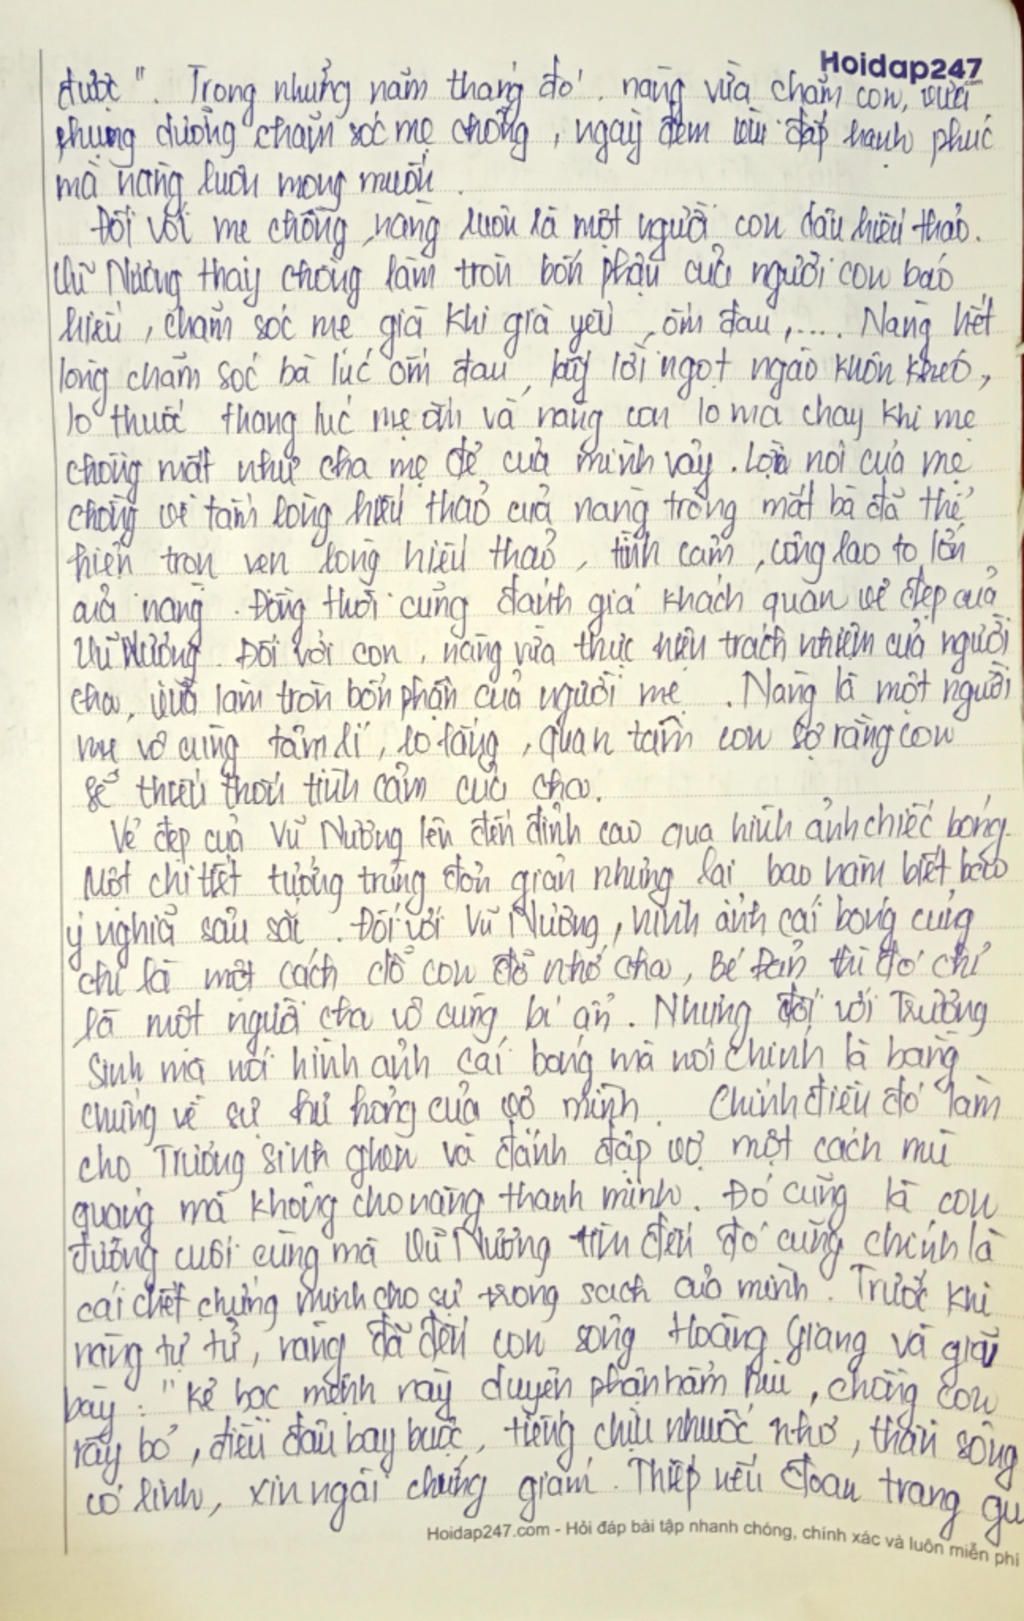 Hoidap247
.com
được". Trong những năm tháng đó, nàng vừa chăm con, vừa
phụng dưỡng chăm sóc mẹ chồng, ngày đêm vun đắp hạnh phúc
mà nàng luôn mong muốn.
Đối với mẹ chồng, nàng luôn là một người con dâu hiếu thảo.
Vũ Nương thay chồng làm tròn bổn phận của người con báo
hiếu, chăm sóc mẹ già khi già yếu, ốm đau,.... Nàng hết
lòng chăm sóc bà lúc ốm đau, lấy lời ngọt ngào khôn khéo,
lo thuốc thang lúc mẹ ốm và nàng còn lo ma chay khi mẹ
chồng mất như cha mẹ đẻ của mình vậy. Lời nói của mẹ
chồng về tấm lòng hiếu thảo của nàng trong mắt bà đã thể
hiện trọn vẹn lòng hiếu thảo, tình cảm, công lao to lớn
của nàng. Đồng thời cũng đánh giá khách quan vẻ đẹp của
Vũ Nương. Đối với con, nàng vừa thực hiện trách nhiệm của người
cha, vừa làm tròn bổn phận của người mẹ. Nàng là một người
mẹ vô cùng tâm lí, lo lắng, quan tâm con sợ rằng con
sẽ thiếu thốn tình cảm của cha.
Vẻ đẹp của Vũ Nương lên đến đỉnh cao qua hình ảnh chiếc bóng.
Một chi tiết tượng trưng đơn giản nhưng lại bao hàm biết bao
ý nghĩa sâu sắc. Đối với Vũ Nương, hình ảnh cái bóng cũng
chỉ là một cách dỗ con đỡ nhớ cha, bé Đản thì đó chỉ
là một người cha vô cùng bí ẩn. Nhưng đối với Trương
Sinh mà nói hình ảnh cái bóng mà nói chính là bằng
chứng về sự hư hỏng của vợ mình. Chính điều đó làm
cho Trương Sinh ghen và đánh đập vợ một cách mù
quáng mà không cho nàng thanh minh. Đó cũng là con
đường cuối cùng mà Vũ Nương tìm đến đó cũng chính là
cái chết chứng minh cho sự trong sạch của mình. Trước khi
nàng tự tử, nàng đã đến con sông Hoàng Giang và giãi
bày: "kẻ bạc mệnh này duyên phận hẩm hiu, chồng con
rẫy bỏ, điều đâu bay buộc, tiếng chịu nhuốc nhơ, thần sông
có linh, xin ngài chứng giám. Thiếp nếu đoan trang gi
Hoidap247.com - Hỏi đáp bài tập nhanh chóng, chính xác và luôn miễn phí